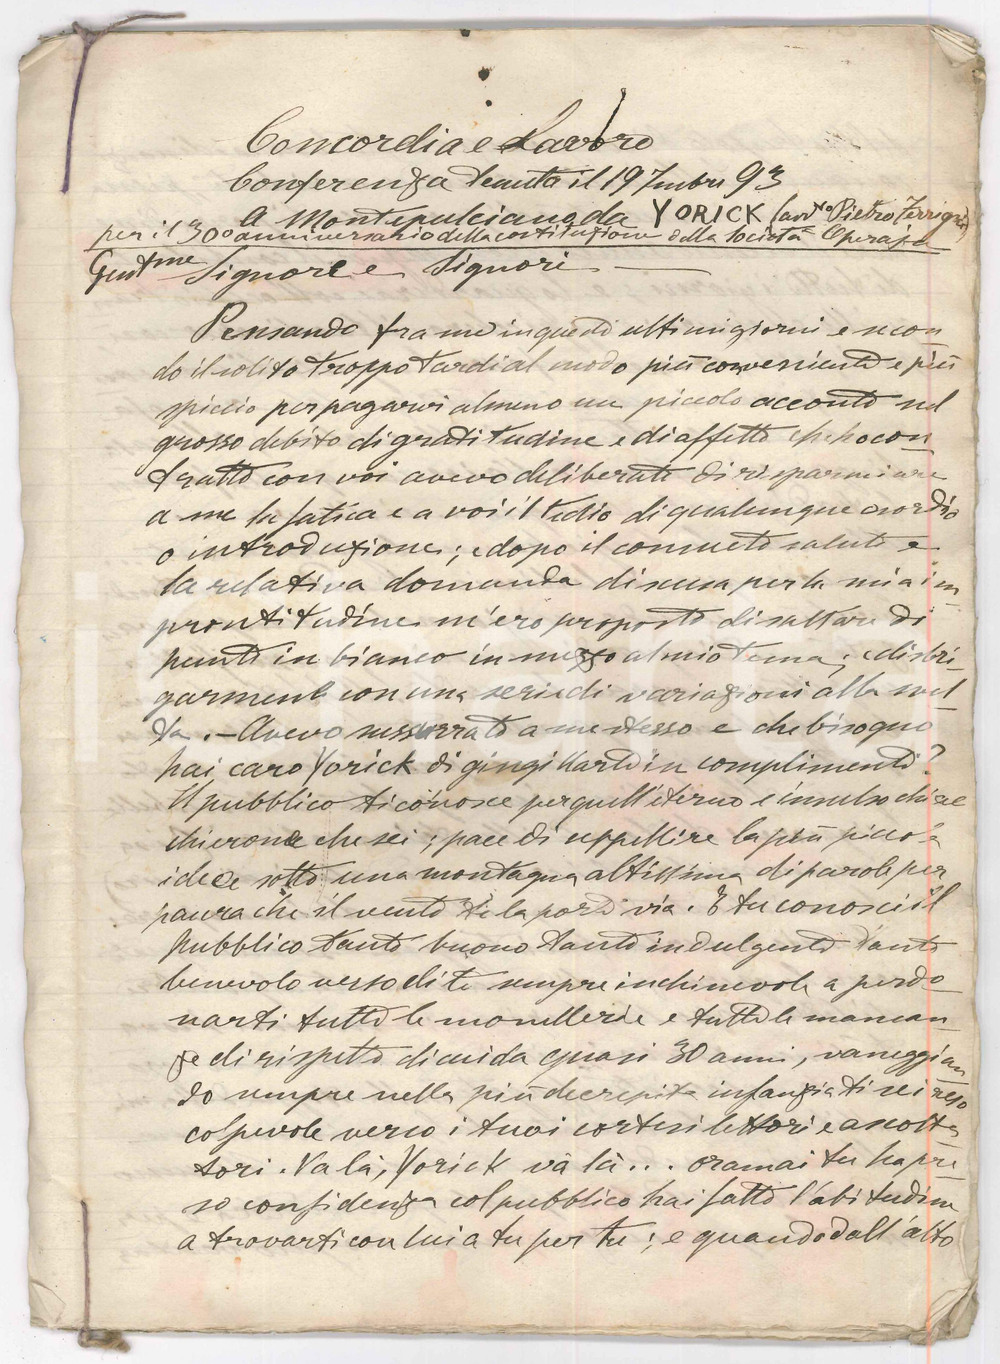 Concordia e Lavoro
Conferenza tenuta il 19 7mbre 93
A Montepulciano da YORICK (avvto Pietro Ferrigni)
per il 30o anniversario della costituzione della Società Operaja
Gentme Signore e Signori
Pensando fra me in questi ultimi giorni e secon
do il solito troppo tardi al modo più conveniente e più
spiccio per pagarvi almeno un piccolo acconto nel
grosso debito di gratitudine e di affetto che ho con
tratto con voi avevo deliberato di risparmiare
a me la fatica e a voi il tedio di qualunque esordio
o introduzione; e dopo il consueto saluto e
la relativa domanda di scusa per la mia im
prontitudine m'ero proposto di saltare di
punto in bianco in mezzo al mio tema; e di sbri-
garmente con una serie di variazioni alla svel
ta. – Avevo sussurrato a me stesso e che bisogno
hai caro Yorick di gingillarti in complimenti?
Il pubblico ti conosce per quell'eterno e insulso chiac
chierone che sei; pace di seppellire la più piccola
idea sotto una montagna altissima di parole per
paura che il vento te la porti via. E tu conosci il
pubblico tanto buono tanto indulgente tanto
benevolo verso di te sempre inchinevole a perdo
narti tutte le monellerie e tutte le mancan
ze di rispetto di cui da quasi 30 anni, vaneggian
do sempre nella più decrepita infanzia ti sei reso
colpevole verso i tuoi cortesi lettori e ascolta
tori. Va là, Yorick và là... oramai tu ha pre
so confidenza col pubblico hai fatto l'abitudine
a trovarti con lui a tu per tu; e quando dall'alto